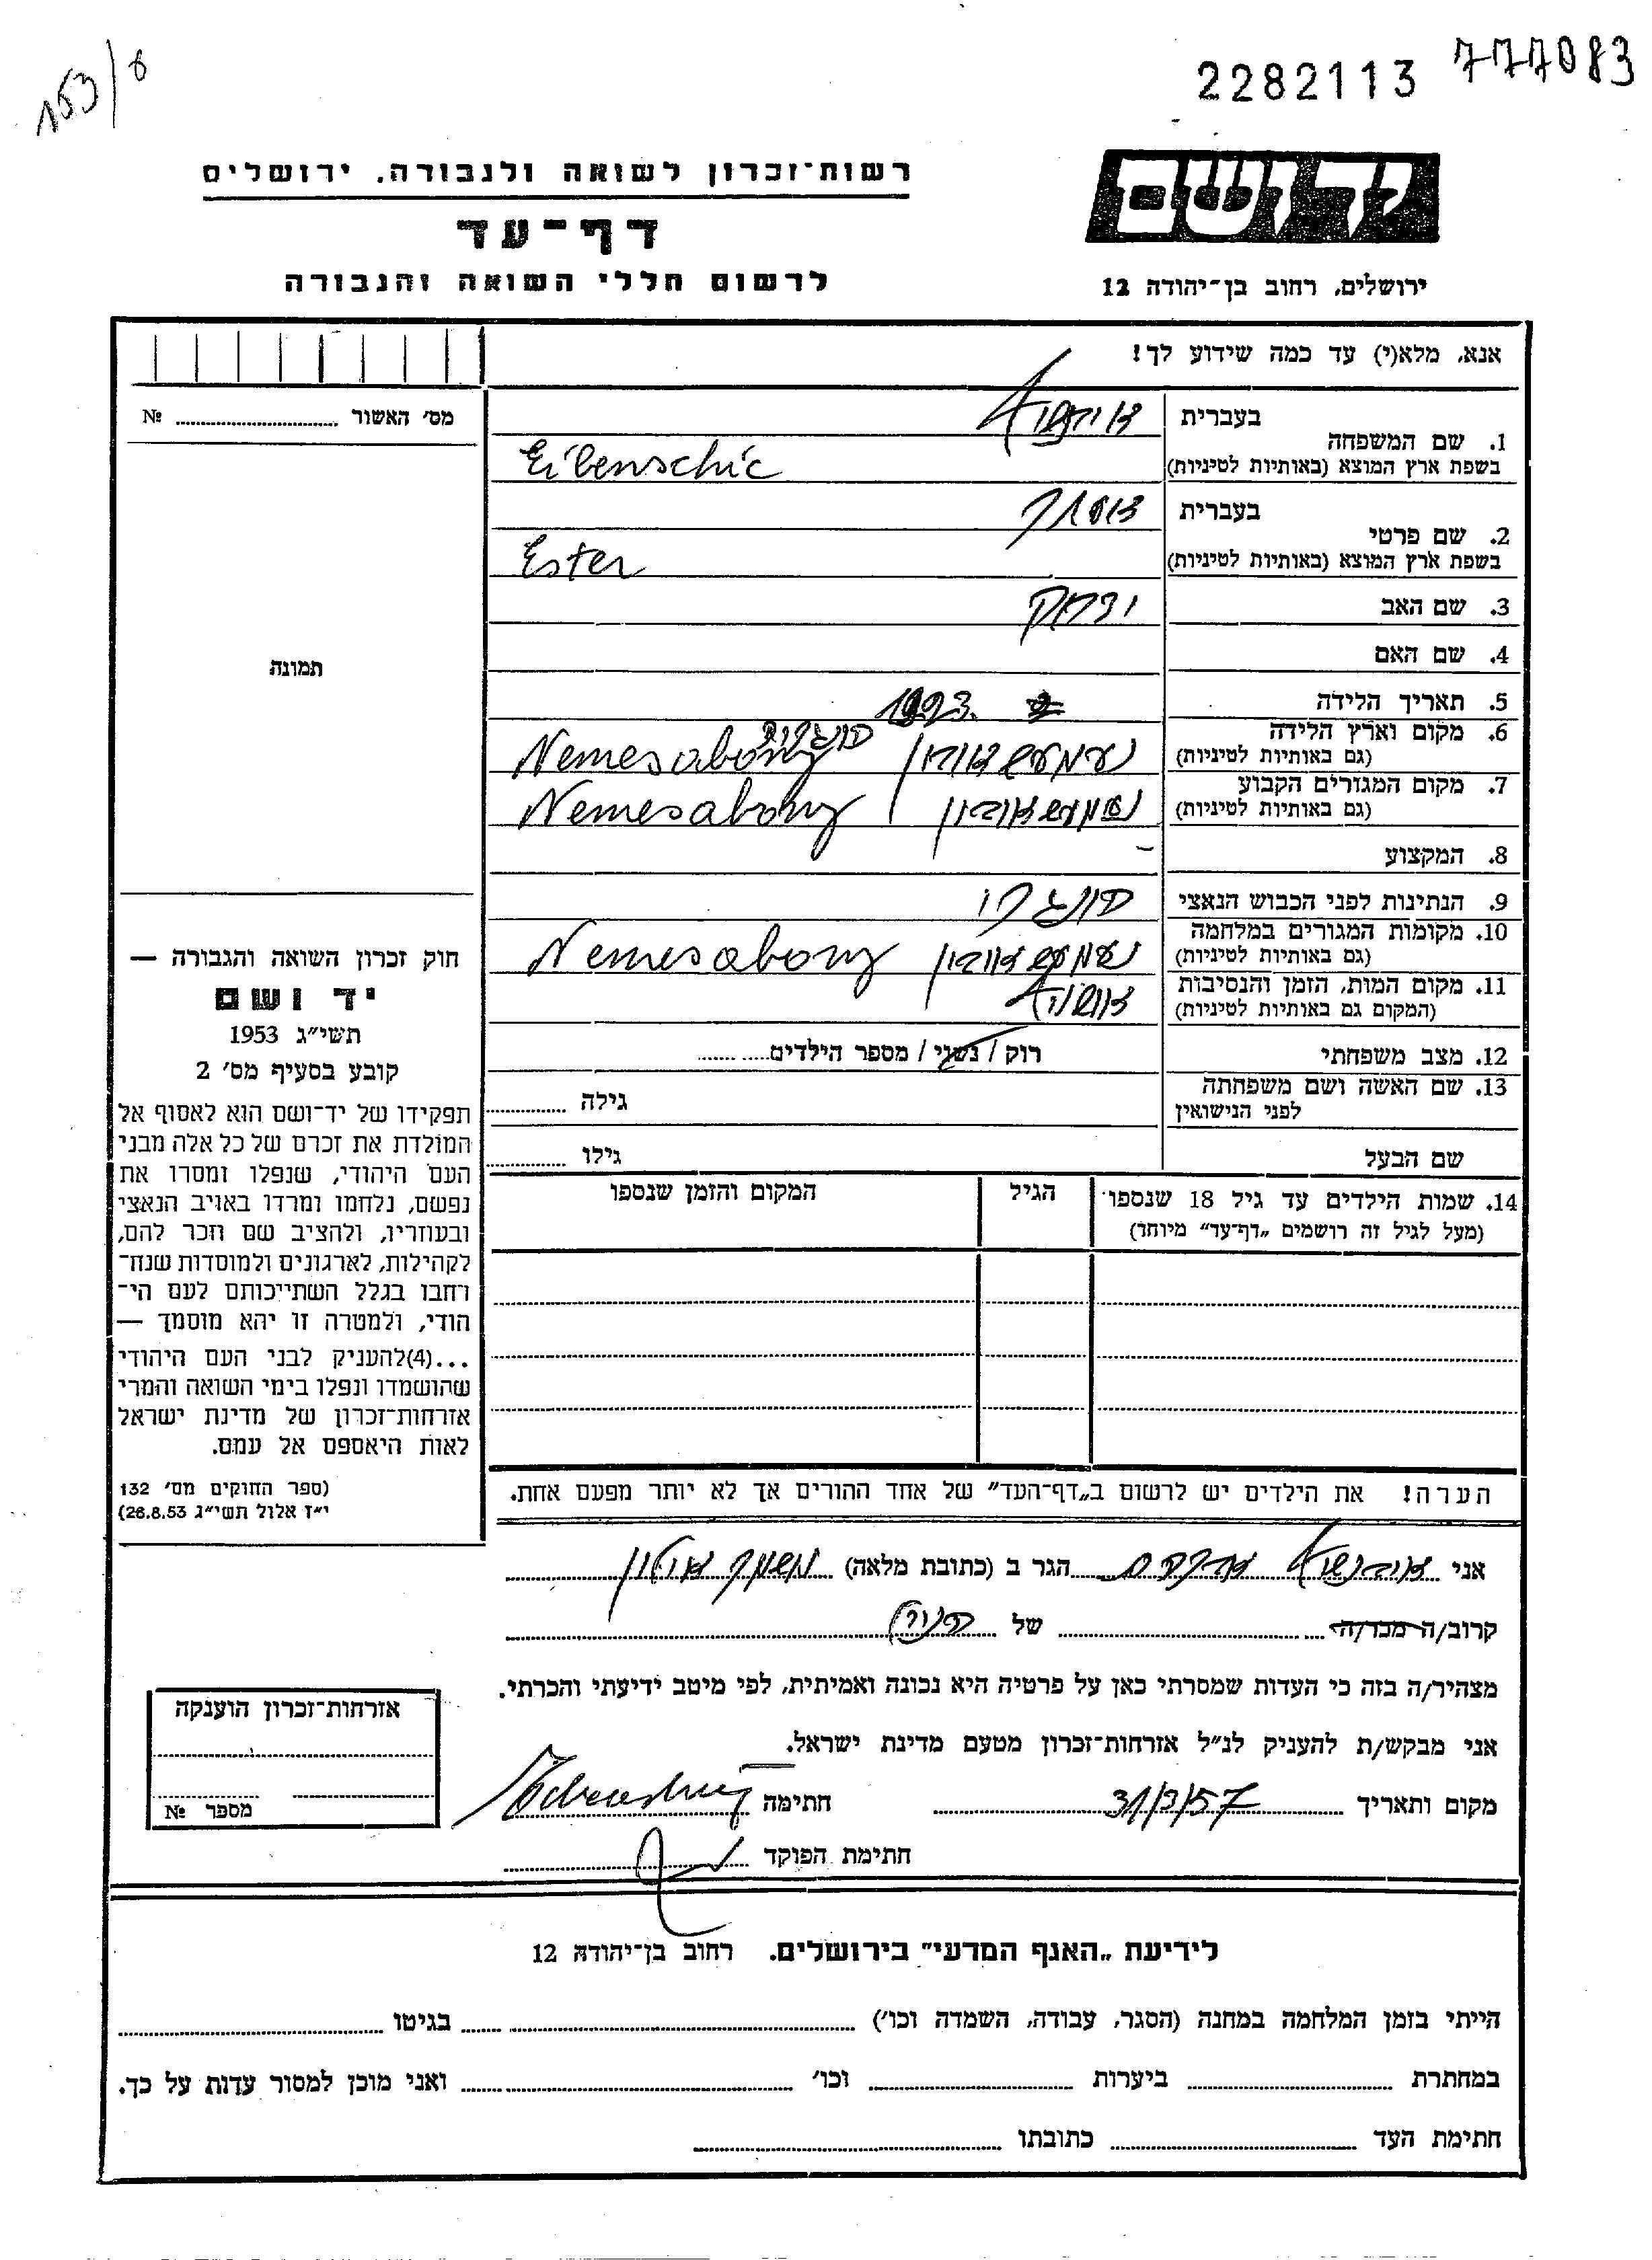 153/6
2282113 777083
רשות־זכרון לשואה ולגבורה, ירושלים
יד ושם
דף־עד
לרשום חללי השואה והגבורה
ירושלים, רחוב בן־יהודה 12
אנא, מלא(י) עד כמה שידוע לך!
מס׳ האשור № 
תמונה
1. שם המשפחה
בעברית
בשפת ארץ המוצא (באותיות לטיניות) Eibenschic
2. שם פרטי
בעברית אסתר
בשפת ארץ המוצא (באותיות לטיניות) Ester
3. שם האב יצחק
4. שם האם
5. תאריך הלידה 1923.
6. מקום וארץ הלידה
(גם באותיות לטיניות) Nemesabony
7. מקום המגורים הקבוע
(גם באותיות לטיניות) Nemesabony
8. המקצוע –
9. הנתינות לפני הכבוש הנאצי
10. מקומות המגורים במלחמה
(גם באותיות לטיניות) Nemesabony
11. מקום המות, הזמן והנסיבות
(המקום גם באותיות לטיניות)
12. מצב משפחתי רוק / נשוי / מספר הילדים
13. שם האשה ושם משפחתה
לפני הנישואין גילה
שם הבעל גילו
14. שמות הילדים עד גיל 18 שנספו הגיל המקום והזמן שנספו
(מעל לגיל זה רושמים „דף־עד״ מיוחד)
חוק זכרון השואה והגבורה —
יד ושם
תשי״ג 1953
קובע בסעיף מס׳ 2
תפקידו של יד־ושם הוא לאסוף אל
המולדת את זכרם של כל אלה מבני
העם היהודי, שנפלו ומסרו את
נפשם, נלחמו ומרדו באויב הנאצי
ובעוזריו, ולהציב שם וזכר להם,
לקהילות, לארגונים ולמוסדות שנח־
רחבו בגלל השתייכותם לעם הי־
הודי, ולמטרה זו יהא מוסמך —
...(4)להעניק לבני העם היהודי
שהושמדו ונפלו בימי השואה והמרי
אזרחות־זכרון של מדינת ישראל
לאות היאספם אל עמם.
(ספר החוקים מס׳ 132
י״ז אלול תשי״ג 26.8.53)
הערה! את הילדים יש לרשום ב„דף־העד״ של אחד ההורים אך לא יותר מפעם אחת.
אני הגר ב (כתובת מלאה)
קרוב/ה מכר/ה של
מצהיר/ה בזה כי העדות שמסרתי כאן על פרטיה היא נכונה ואמיתית, לפי מיטב ידיעתי והכרתי.
אני מבקש/ת להעניק לנ״ל אזרחות־זכרון מטעם מדינת ישראל.
מקום ותאריך 31/3/57 חתימה
חתימת הפוקד
אזרחות־זכרון הוענקה
מספר №
לידיעת „האגף המדעי״ בירושלים. רחוב בן־יהודה 12
הייתי בזמן המלחמה במחנה (הסגר, עבודה, השמדה וכו׳) בגיטו
במחתרת ביערות וכו׳ ואני מוכן למסור עדות על כך.
חתימת העד כתובתו